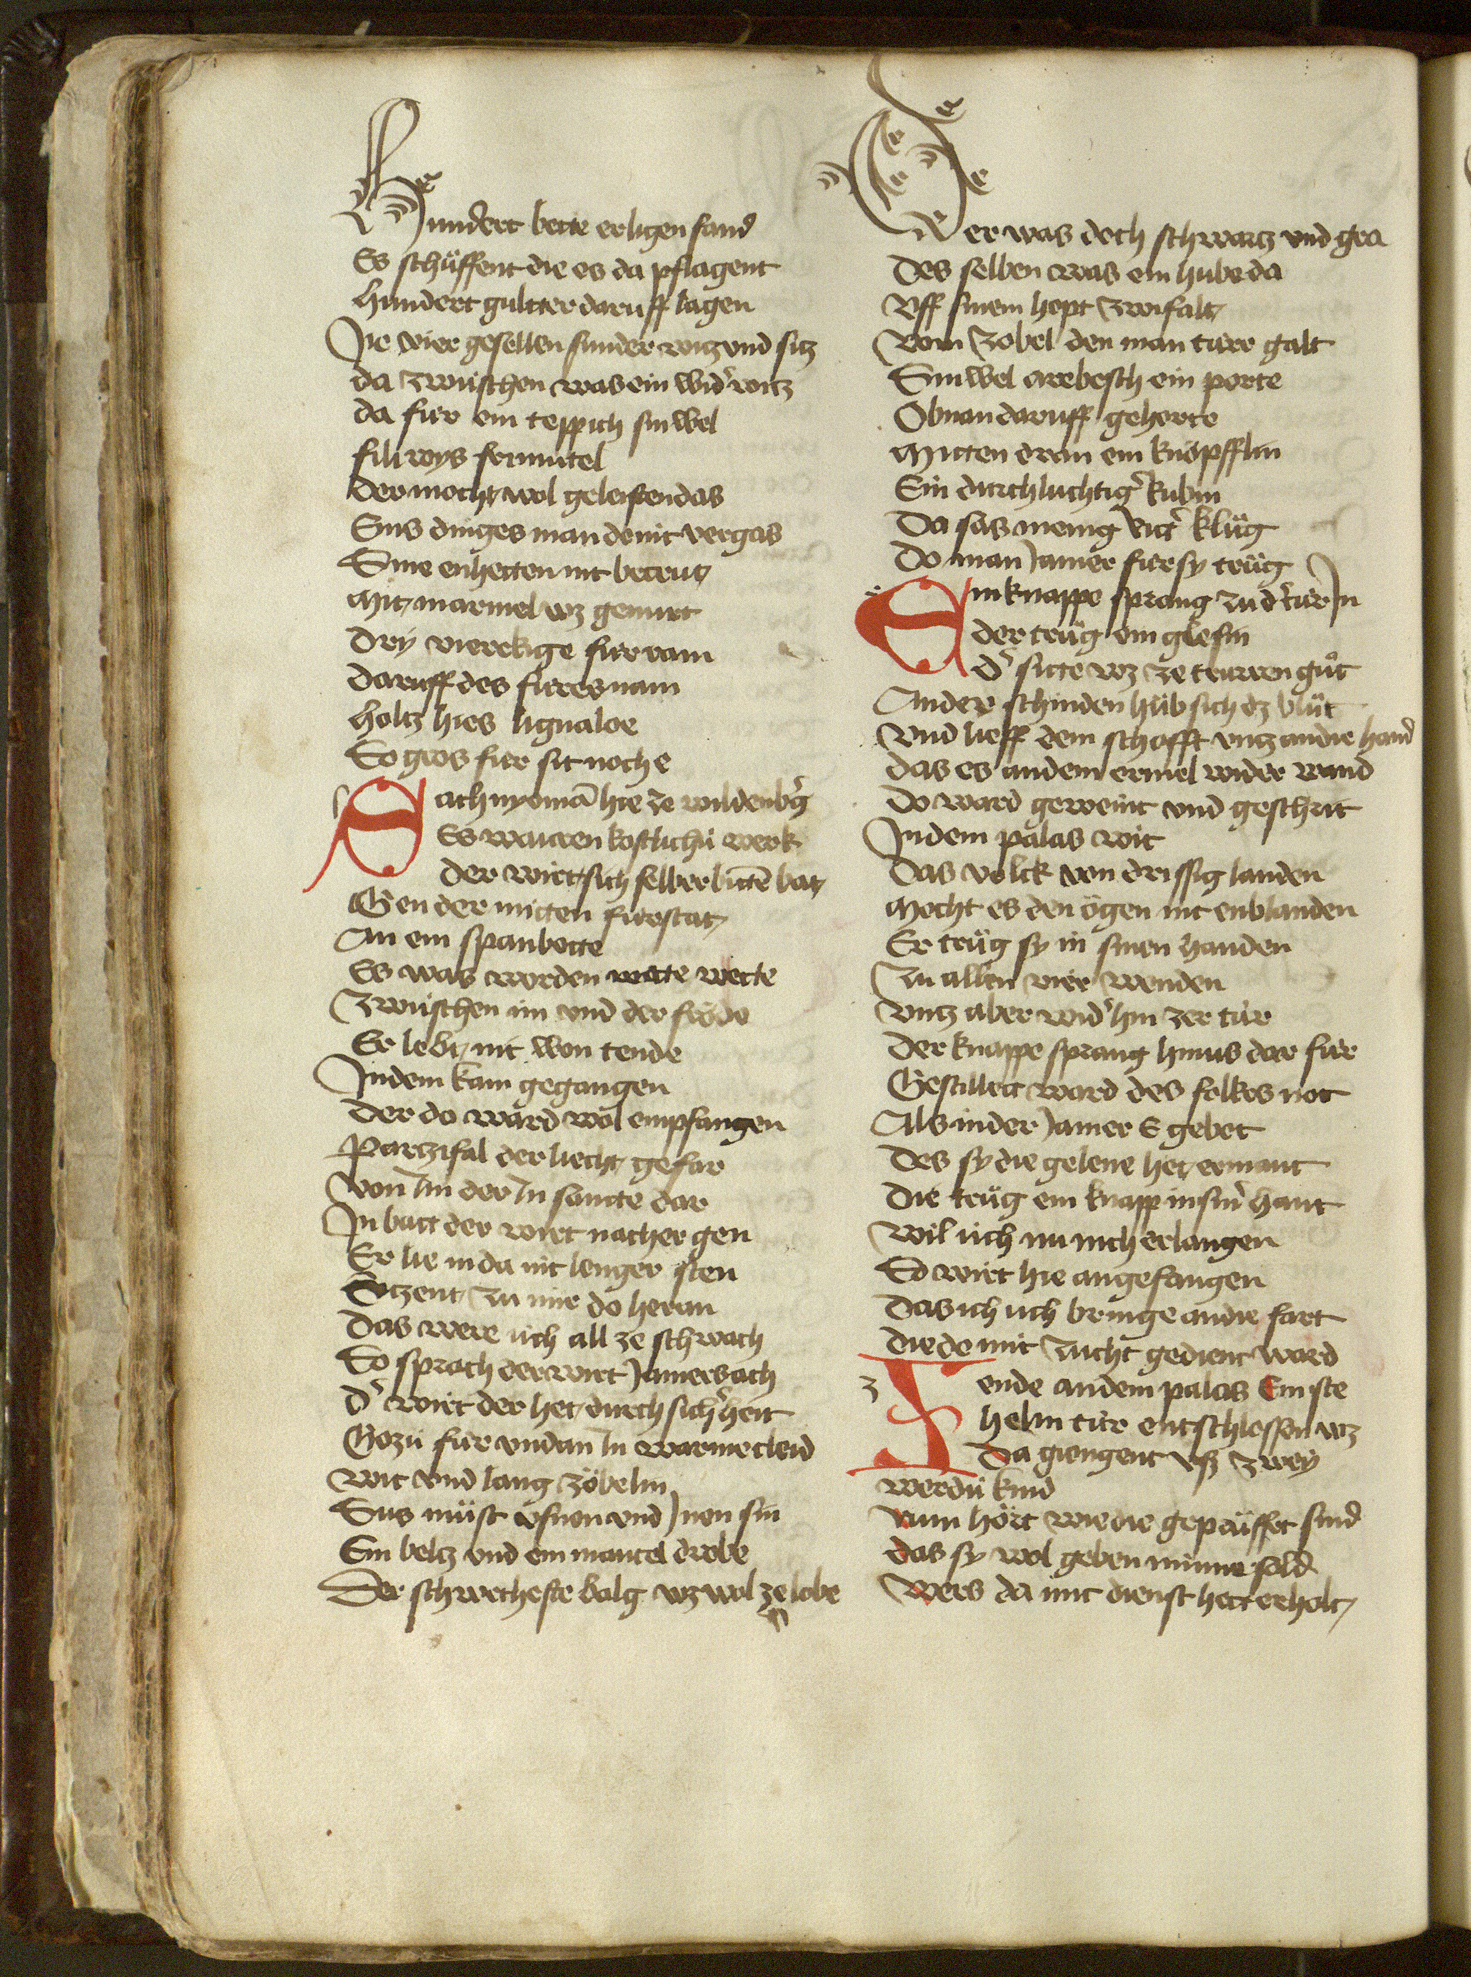 Hundert bette er ligen fand
Es schüffent die es da pflagent
hundert gultter daruff lagen
Ire vier gesellen sunder witz vnd sitz
da zwüschen was ein wid' witz
da für ein teppich sinwel
fili roys frimutel
Der mocht wol geleisten das
Sus dinges man do nit vergas
Sine enhetten nit betrut
Mit marmel wz gemurt
Dry viereckige für ram
Daruff des füres nam
holtz hies lignaloe
So gros für sit noch e
Sach nyeman hie ze wildenb'g
Es warren kostlichü werk
Der wirt sich selber bitte bat
Gen der mitten fürstat
An ein spanbette
Es was worden wette wette
Zwüschen im vnd der fröde
Er lebt nit won tende
Indem kam gegangen
Der do ward wol empfangen
Parzifal der liecht gefar
Von Im der In sante dar
In batt der wirt nacher gen
Er lie in da nit lenger sten
Sitzent zu mir do heran
Das were üch all ze schwach
So sprach der wirt Jamers ach
D' wirt der het durch sich'heit
Grozü für vnd an In warme cleid
wit vnd lang zöbelin
Sus müst vsnen vnd Jnen sin
Ein beltz vnd ein mantel drobe
Der schwecheste balg wz wol ze lobe
Der was doch schwartz vnd gra
Des selben was ein hube da
Vff sinem hopt zwifalt
Vom zobel den man türr galt
Sinwel arebesch ein porte
Obnan daruff gehorte
Mitten dran ein knöpfflin
Ein durchluchtig' Rubin
Da sas menig Ritt' klüg
Do man Jamer für sy trüg
Ein knappe sprang zu d' tür In
der trüg ein glefin
D' sitte wz ze truren güt
An der schinden hüb sich dz blüt
Vnd lieff dem schafft vntz an die hand
das es an dem ermel wider wand
Do ward geweint vnd geschrit
In dem palas wit
Das volck von drissig landen
Mecht es den ögen nit enblanden
Er trüg sy in sinen handen
Zu allen vier wenden
vntz aber wid' hin zer tür
Der knappe sprang hinus dar für
Gestillett ward des folkes not
Als in der Jamer E gebot
Des sy die gelene het ermant
Die trüg ein knapp in sin' hant
Wil üch nu nich erlangen
So wirt hie angefangen
Das ich üch bringe an die fart
Die do mit zucht gedient ward
Ze ende an dem palas Ein ste
helin tür entschlossen wz
Da giengent vsz zwey
werdü kind
Nun hört wie die geprüffet sind
das sy wol geben minne sold
Wers da mit dienst hett erholt